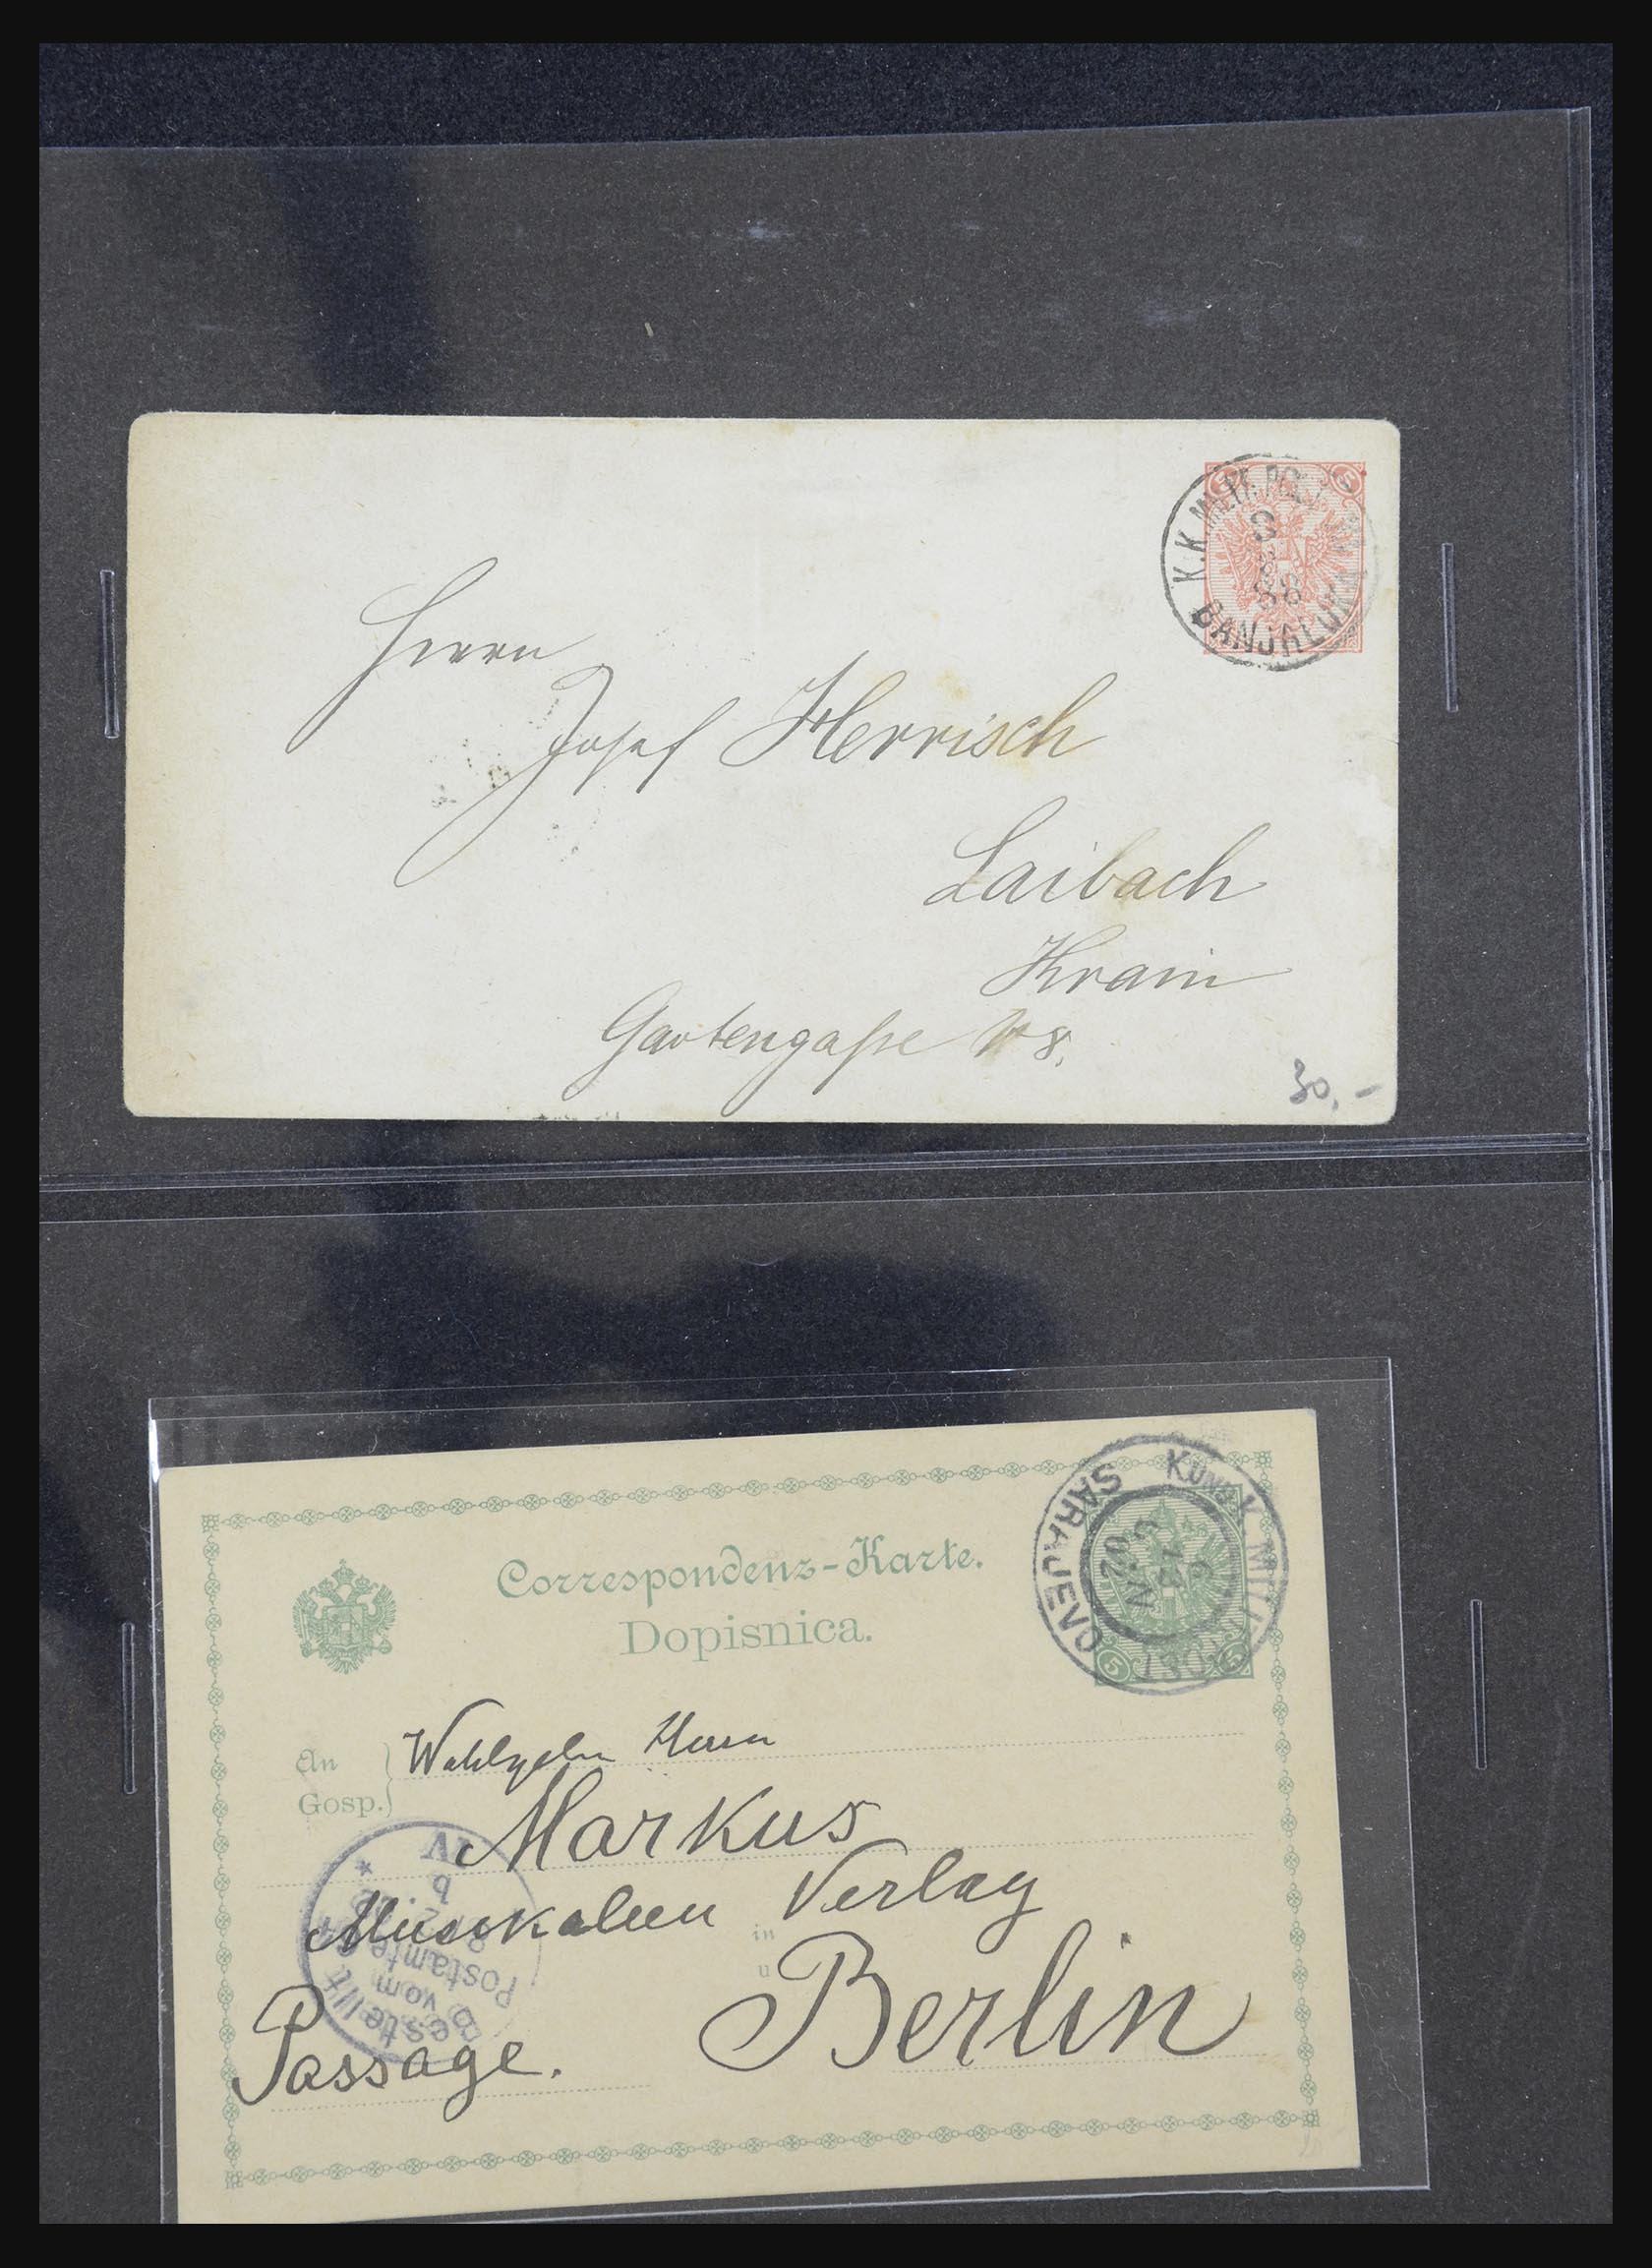 K.K. MILIT. POST
5
3
88
BANJALUKA
Herrn
Josef Herrisch
Laibach
Krain
Gartengaße № 8.
30,-
SARAJEVO
5
5
Correspondenz-Karte.
Dopisnica.
An
Gosp.
Herrn
Markus
Musikalien Verlag
in
u
Berlin
Passage.
Bestellt
vom
Postamte